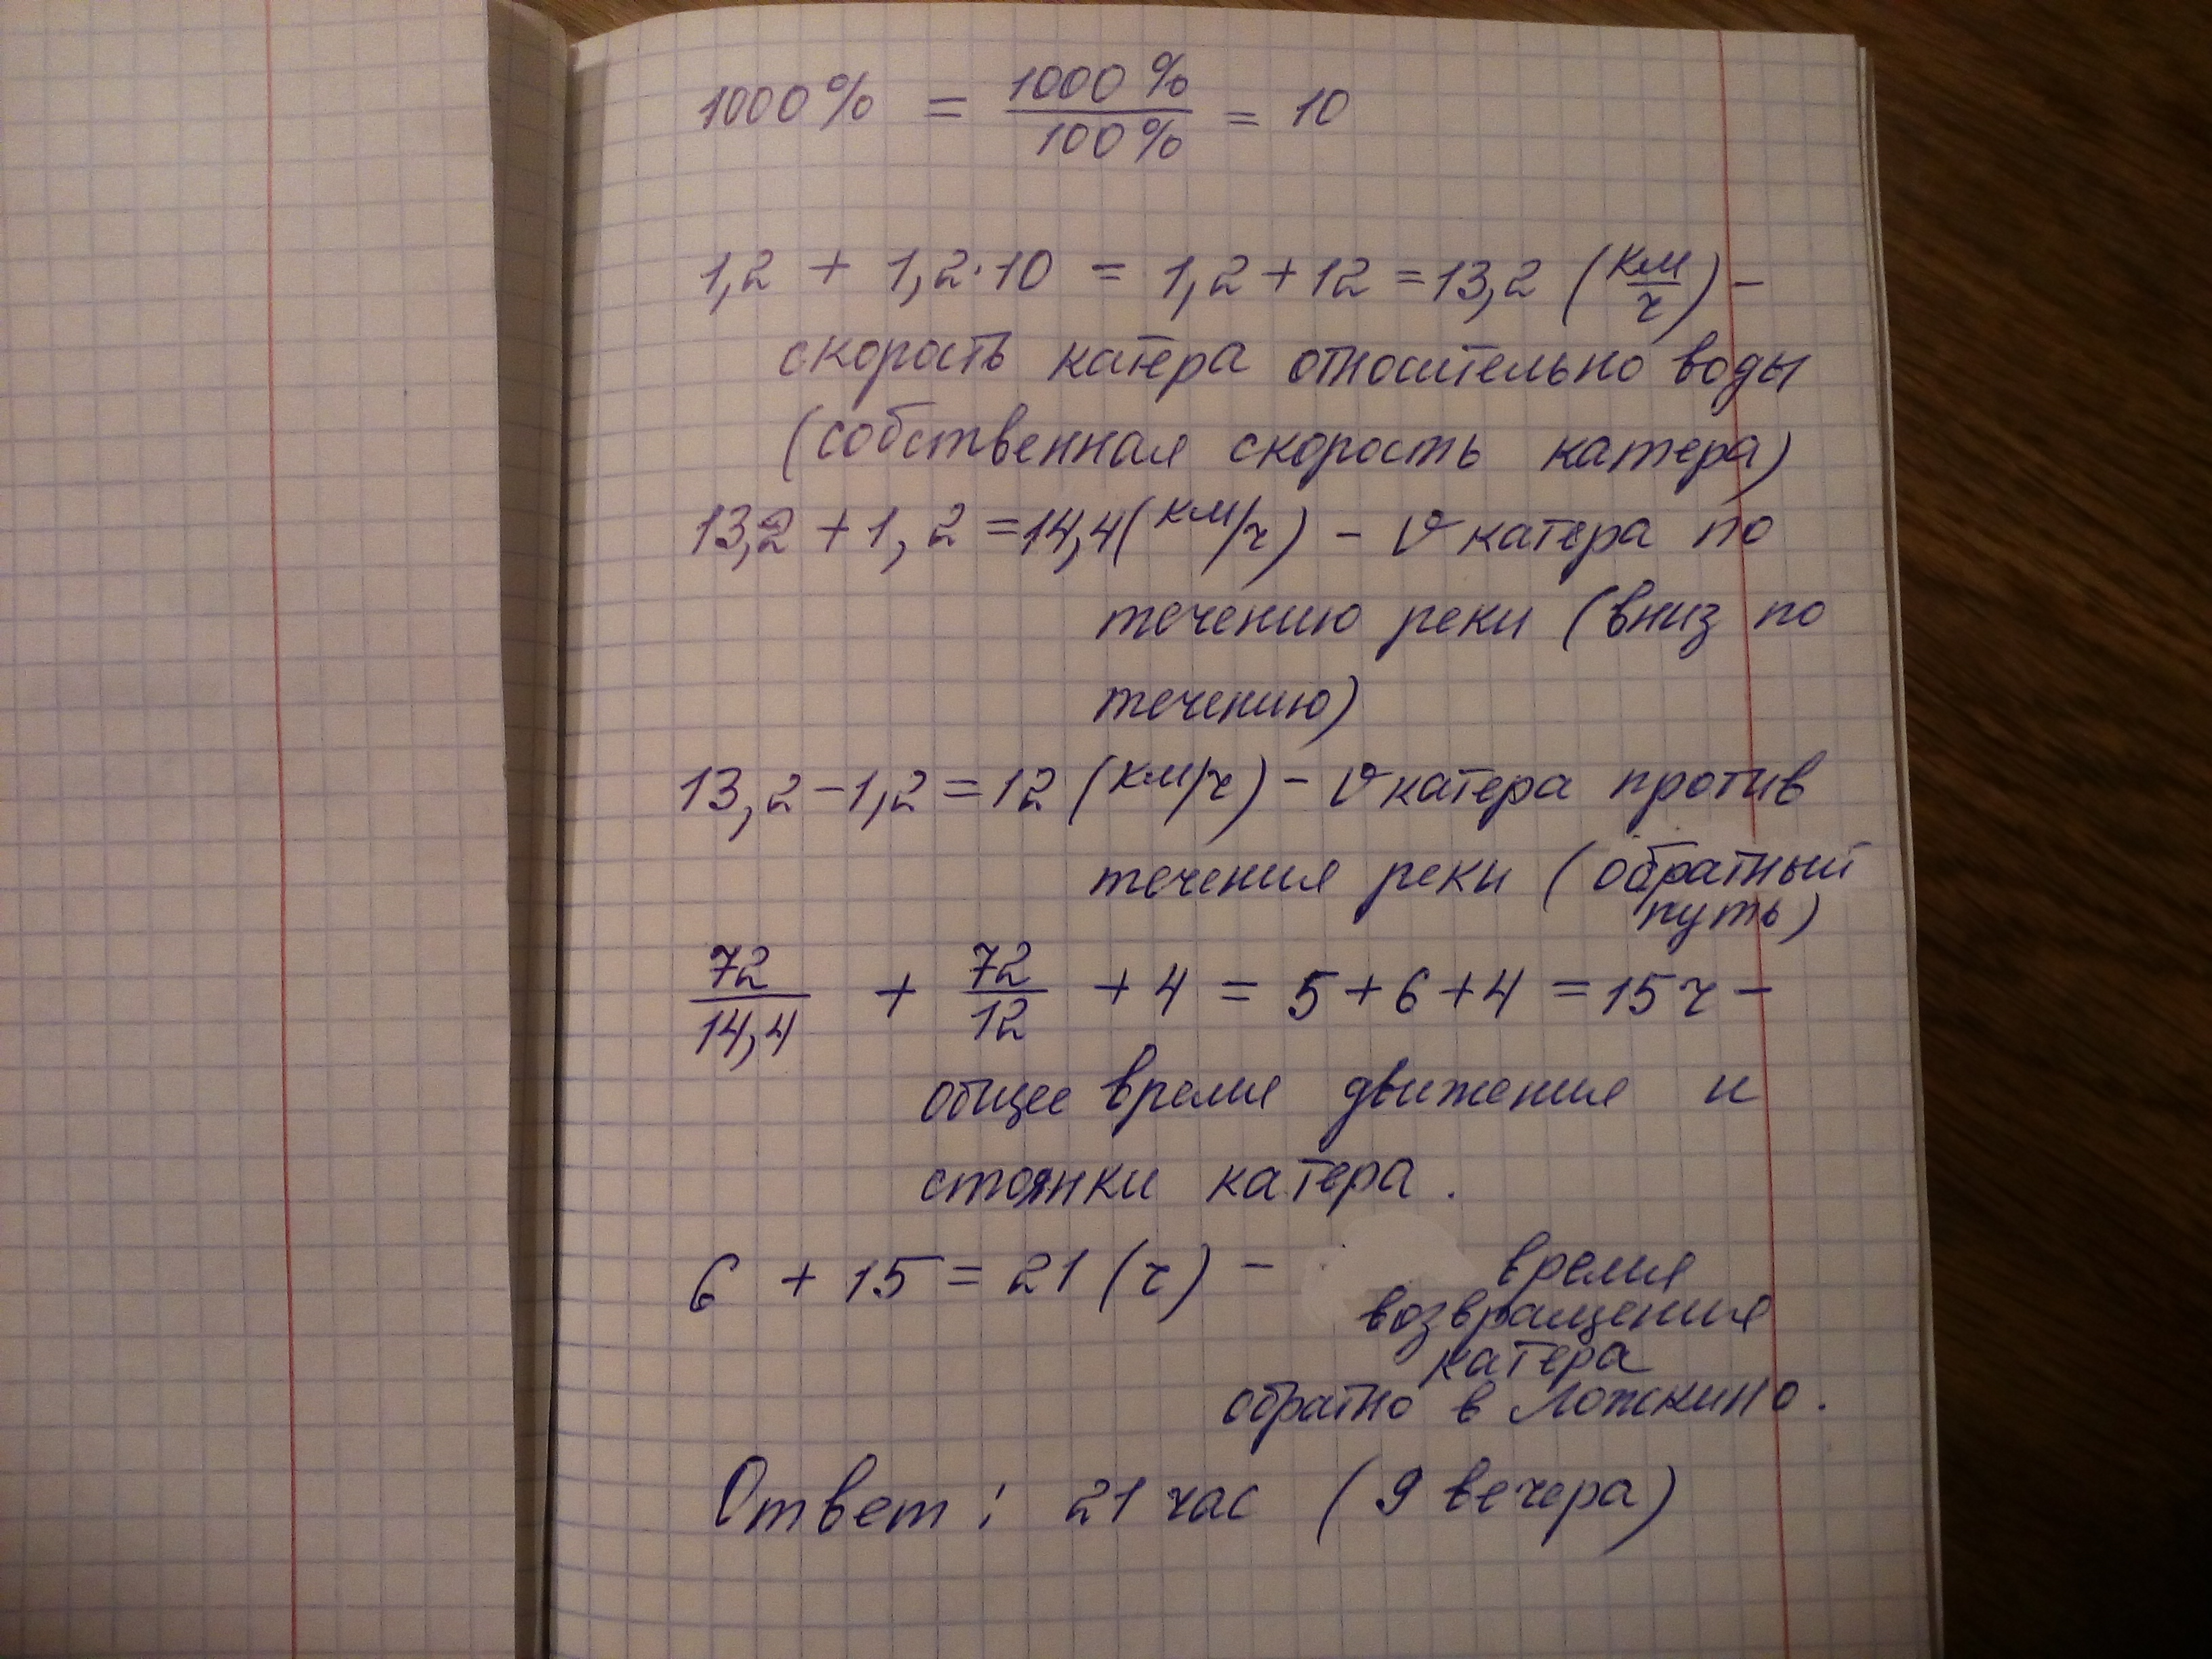 1000% = 1000%/100% = 10
1,2 + 1,2·10 = 1,2+12 =13,2 (км/ч) –
скорость катера относительно воды
(собственная скорость катера)
13,2 +1,2 =14,4(км/ч) – v катера по
течению реки (вниз по
течению)
13,2–1,2=12 (км/ч) – v катера против
течения реки (обратный
путь)
72/14,4 + 72/12 +4 = 5+6+4 =15ч –
общее время движения и
стоянки катера.
6 +15=21(ч) – время
возвращения
катера
обратно в Ложкино.
Ответ: 21 час (9 вечера)